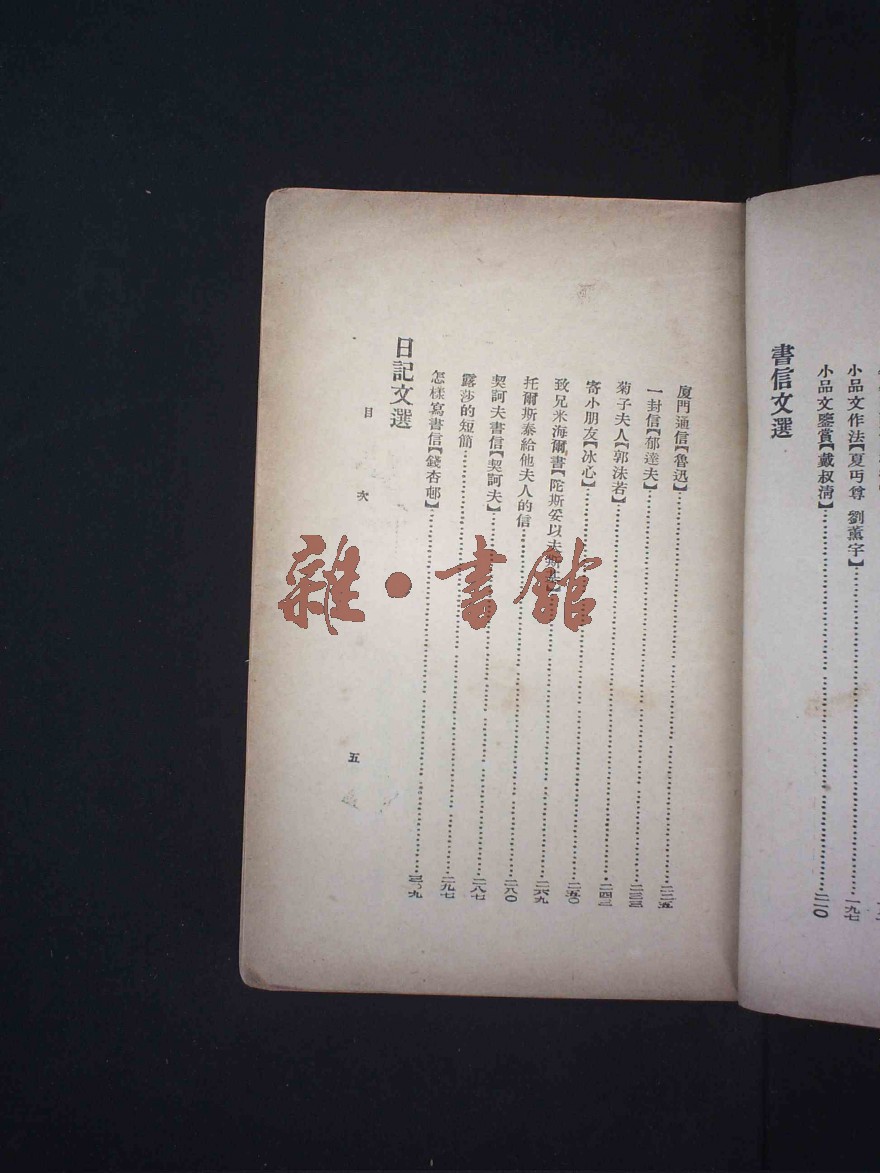 小品文作法【夏丏尊 劉薰宇】…………一九七
小品文鑒賞【戴叔淸】…………二一〇
書信文選
廈門通信【魯迅】…………二二五
一封信【郁達夫】…………二三三
菊子夫人【郭沫若】…………二四二
寄小朋友【冰心】…………二五〇
致兄米海爾書【陀斯妥以夫斯基】…………二六九
托爾斯泰給他夫人的信…………二八〇
契訶夫書信【契訶夫】…………二八七
露莎的短簡…………二九七
怎樣寫書信【錢杏邨】…………三〇九
日記文選
目次
五
雜·書館